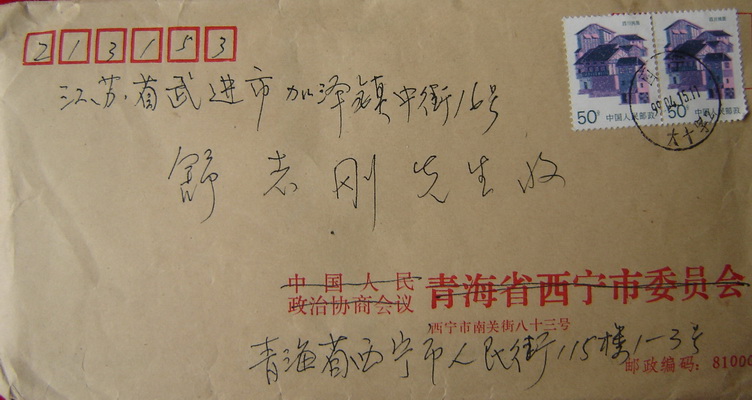 213153
江苏省武进市加泽镇中街16号
舒志刚先生收
50分 中国人民邮政
50分 中国人民邮政
99.04.15.11
中国人民
政治协商会议 青海省西宁市委员会
西宁市南关街八十三号
青海省西宁市人民街115楼1-3号
邮政编码: 81000